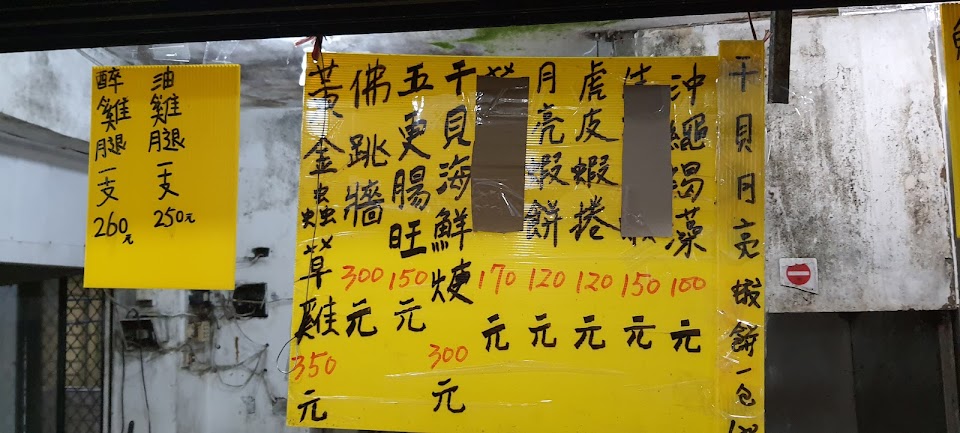 干貝月亮蝦餅一包
沖繩褐藻 100元
150元
虎皮蝦捲 120元
月亮蝦餅 120元
170元
干貝海鮮焿 300元
五更腸旺 150元
佛跳牆 300元
黃金蟲草雞 350元
油雞腿一支 250元
醉雞腿一支 260元